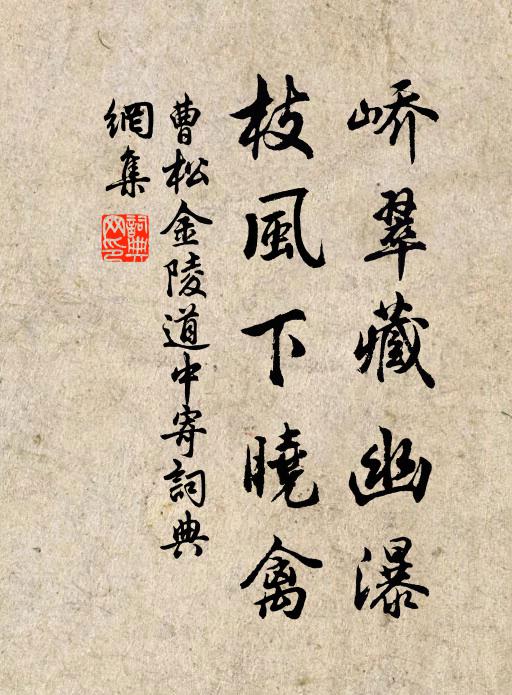 嶠翠藏幽瀑
枝風下曉禽
曹松金陵道中寄詞典
網集
詞典網印